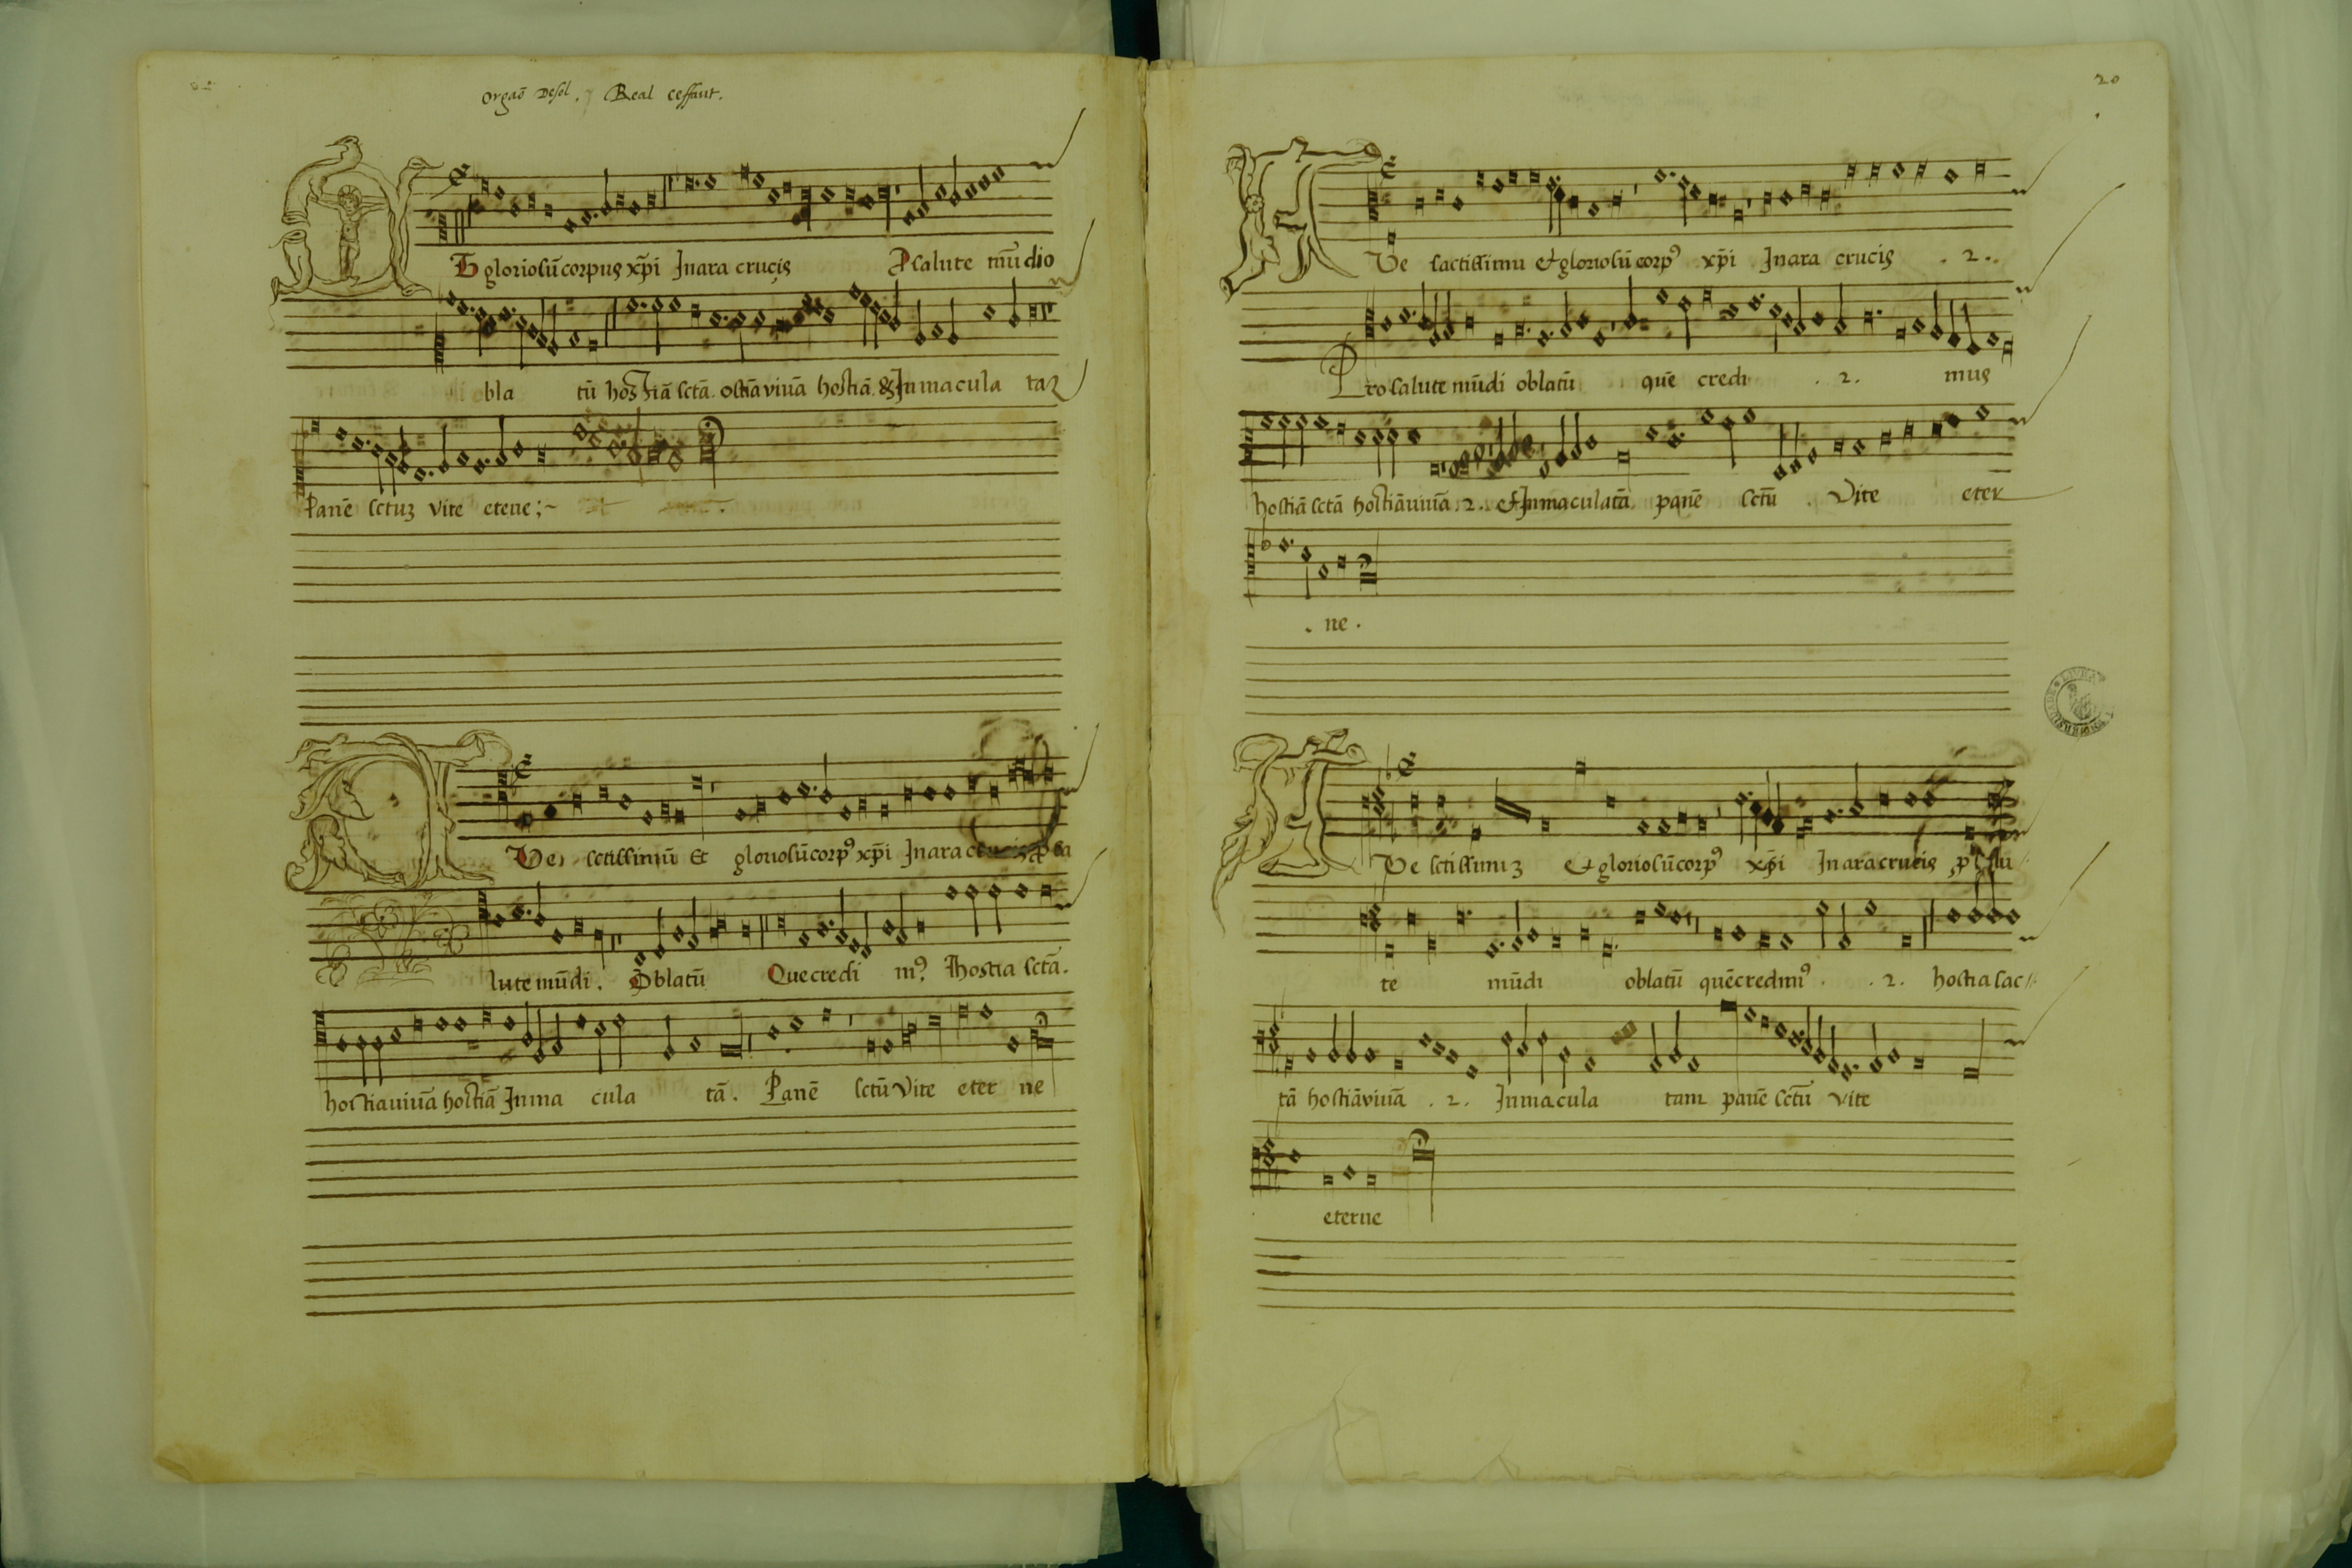 Real cessant.
Et gloriosũ corpus xp̃i Jn ara crucis P salute mũdi o
bla tũ hostiã sctã. ostiã viuã hostiã. & Jnmacula taz
Panẽ sctuz vite eterne ;~
Ve sctissimũ Et gloriosũ corpꝰ xp̃i Jn ara crucis p sa
lute mũdi. Oblatũ Que credi mꝰ hostia sctã.
hostia uiuã hostiã Jnma cula tã. Panẽ sctũ vite eter ne
20
Ve sactissimu et gloriosũ corpꝰ xp̃i Jn ara crucis . 2.
Pro salute mũdi oblatũ quẽ credi . 2. mus
hostiã sctã hostiã uiuã . 2. et Jnmaculatã panẽ sctũ . Vite eter
. ne .
Ve sctissimuz et gloriosũ corpꝰ xp̃i Jn ara crucis
te mũdi oblatũ quẽ credimꝰ . . 2. hostia sac
tã hostiã viuã . 2. Jnmacula tam panẽ sctũ vite
eterne